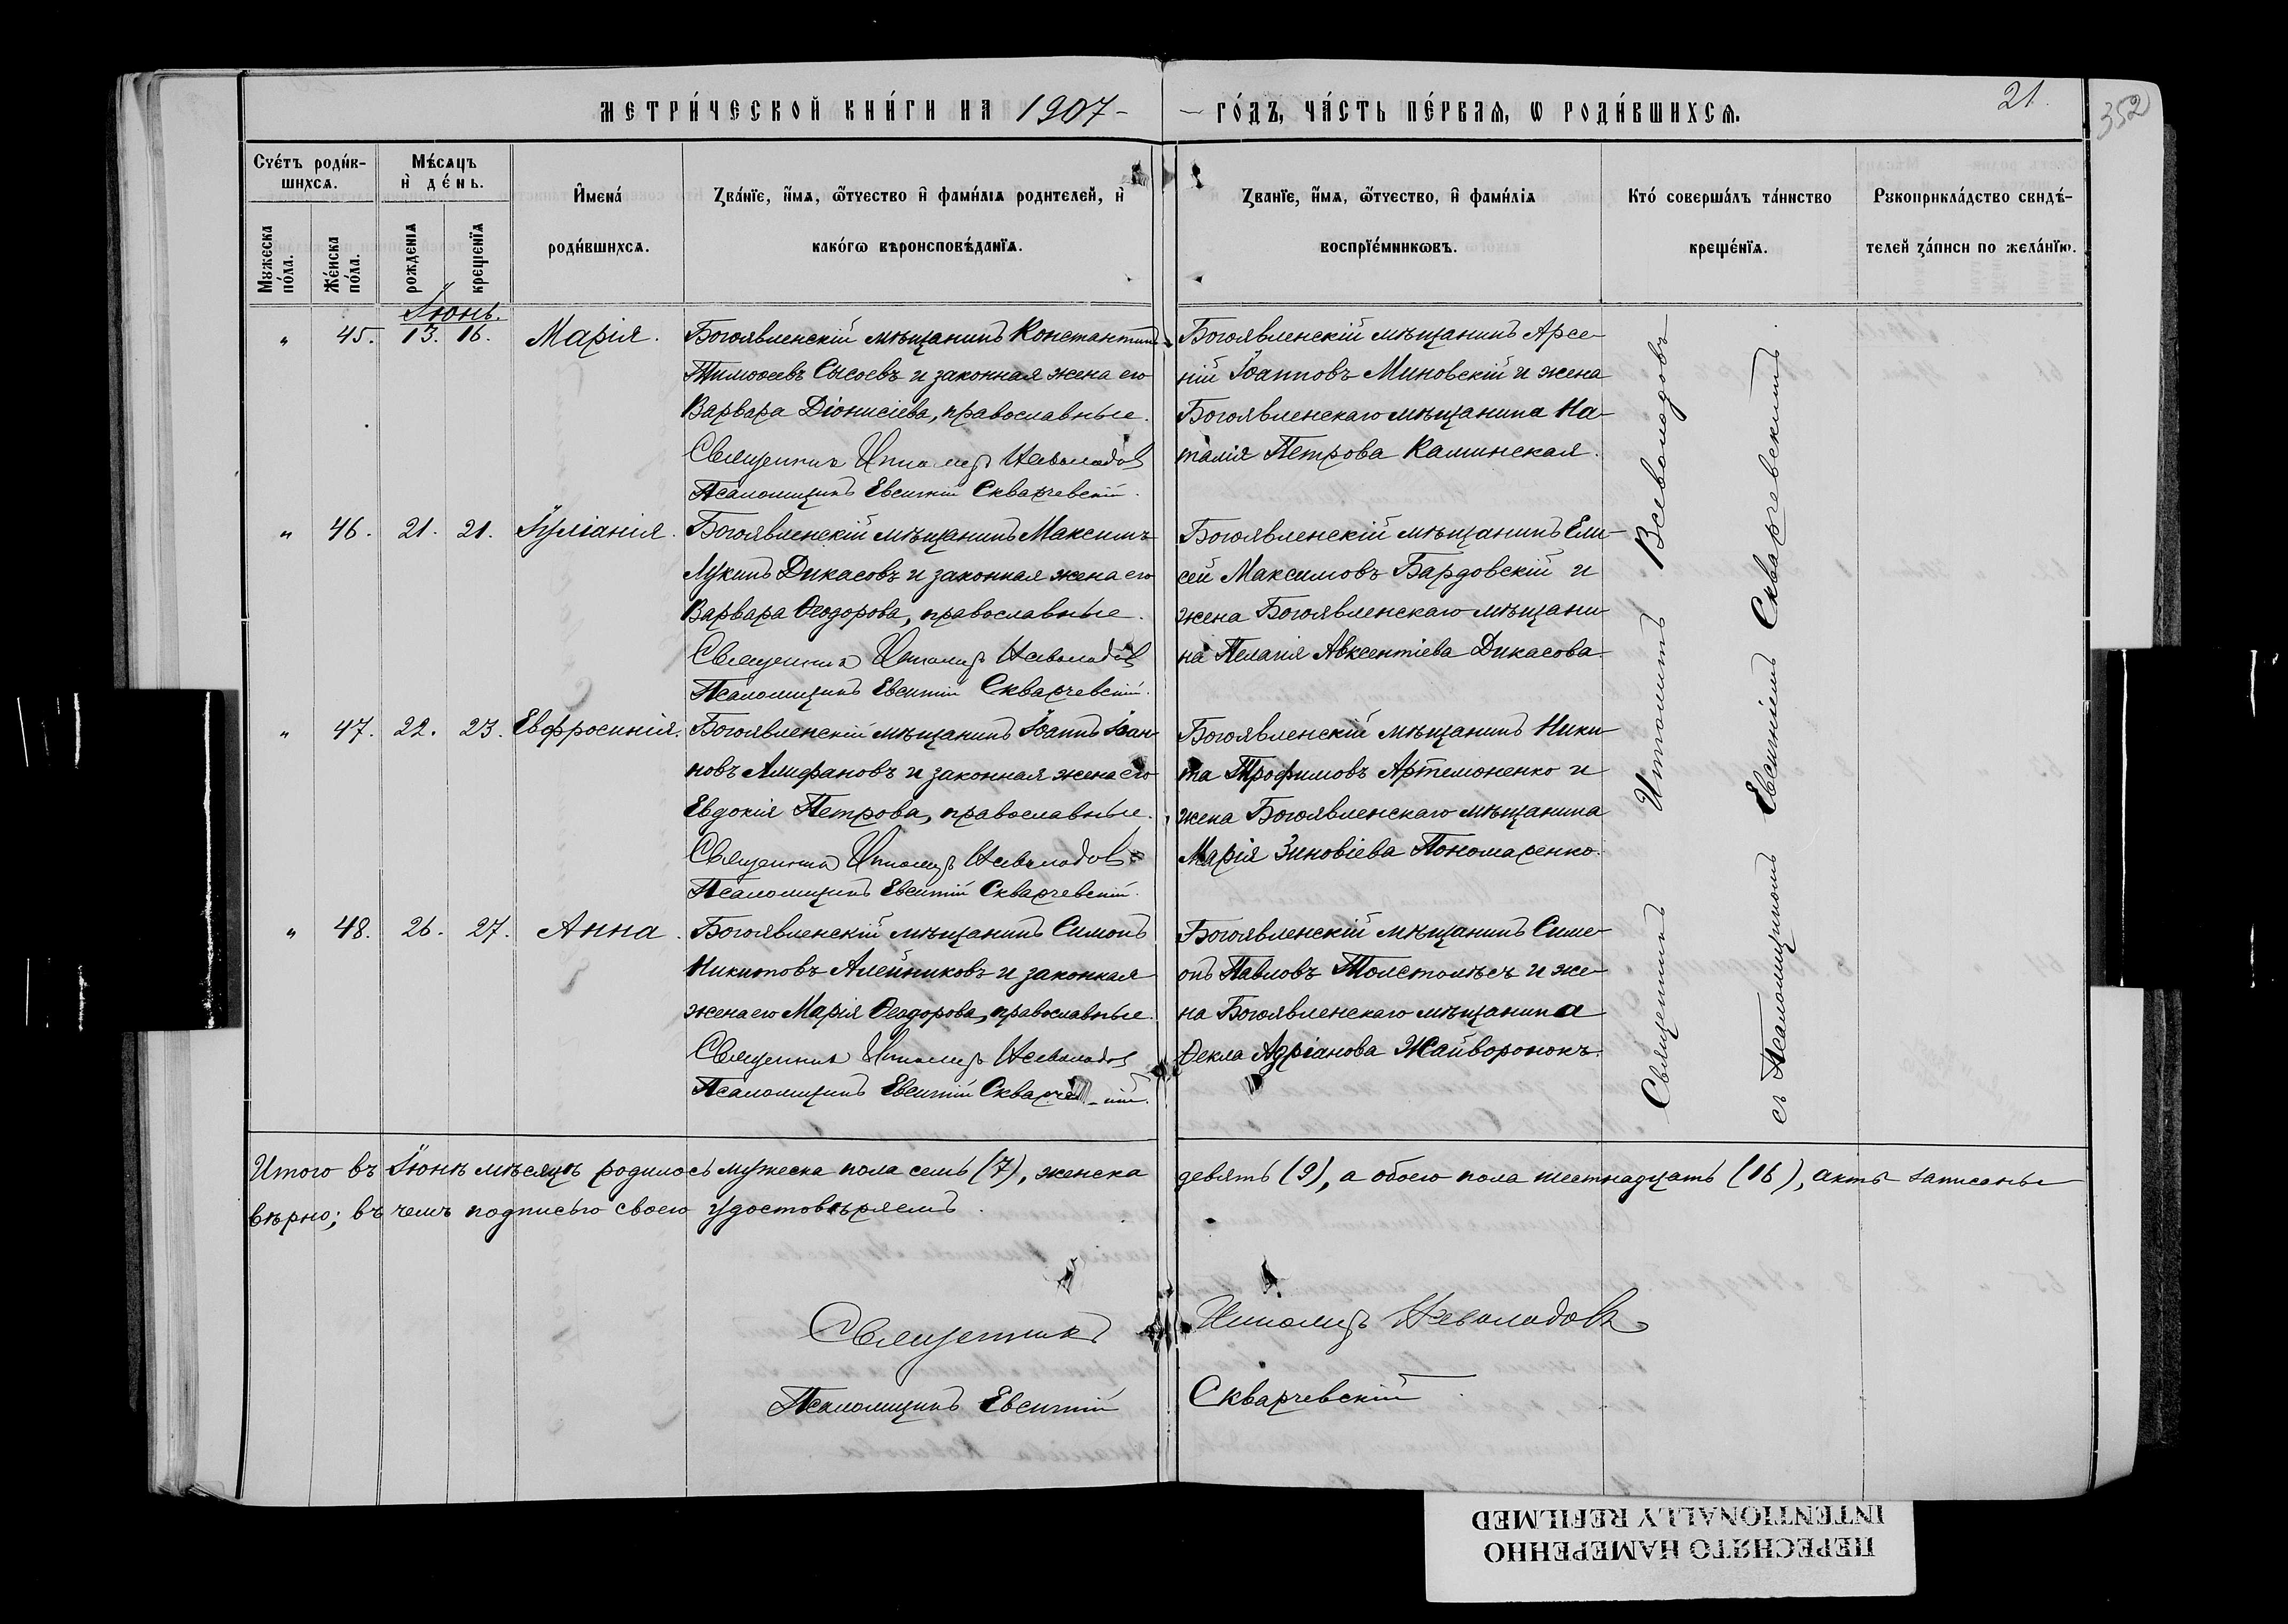 МЕТРИ́ЧЕСКОЙ КНИ́ГИ НА 1907 ГО́ДЪ, ЧА́СТЬ ПЕ́РВАѦ, Ѡ РОДИ́ВШИХСѦ.
21.
352
Сче́тъ роди́в-
шихсѧ.
Мѣ́сѧцъ
и҆ де́нь.
И҆мена́
роди́вшихсѧ.
Зва́нїе, и҆́мѧ, ѻ҆́тчество и҆ фами́лїѧ родителей, и҆
како́гѡ вѣроисповѣ́данїѧ.
Зва́нїе, и҆́мѧ, ѻ҆́тчество, и҆ фами́лїѧ
воспрїе́мникѡвъ.
Кто́ соверша́лъ та́инство
креще́нїѧ.
Рꙋкоприкла́дство свидѣ́-
телей за́писи по жела́нїю.
Мꙋжеска
по́ла.
Же́нска
по́ла.
рожденїѧ
крещенїѧ
Іюнь.
" 45. 13. 16. Марія.
Богоявленскій мѣщанинъ Константинъ
Тимоѳеевъ Сысоевъ и законная жена его
Варвара Діонисіева, православные.
Священникъ Ипполитъ Всеволодовъ
Псаломщикъ Евсигній Скварчевскій.
Богоявленскій мѣщанинъ Арсе-
ній Іоанновъ Миновскій и жена
Богоявленскаго мѣщанина На-
талія Петрова Каминская.
" 46. 21. 21. Іуліанія.
Богоявленскій мѣщанинъ Максимъ
Лукинъ Дикасовъ и законная жена его
Варвара Ѳеодорова, православные.
Священникъ Ипполитъ Всеволодовъ
Псаломщикъ Евсигній Скварчевскій.
Богоявленскій мѣщанинъ Ели-
сей Максимовъ Бардовскій и
жена Богоявленскаго мѣщани-
на Пелагія Авксентіева Дикасова.
" 47. 22. 23. Евфросинія.
Богоявленскій мѣщанинъ Іоаннъ Іоан-
новъ Алифановъ и законная жена его
Евдокія Петрова, православные.
Священникъ Ипполитъ Всеволодовъ
Псаломщикъ Евсигній Скварчевскій.
Богоявленскій мѣщанинъ Ники-
та Трофимовъ Артемоненко и
жена Богоявленскаго мѣщанина
Марія Зиновіева Пономаренко.
" 48. 26. 27. Анна.
Богоявленскій мѣщанинъ Симонъ
Никитовъ Алейниковъ и законная
жена его Марія Ѳеодорова, православные.
Священникъ Ипполитъ Всеволодовъ
Псаломщикъ Евсигній
Богоявленскій мѣщанинъ Симе-
онъ Павловъ Толстолѣсъ и же-
на Богоявленскаго мѣщанина
Ѳекла Адріанова Жайворонокъ.
Священникъ Ипполитъ Всеволодовъ
съ Псаломщикомъ Евсигніемъ Скварчевскимъ.
Итого въ Іюнѣ мѣсяцѣ родилось мужеска пола семь (7), женска девять (9), а обоего пола шестнадцать (16), акты записаны
вѣрно; въ чемъ подписью своею удостовѣряемъ.
Священникъ Ипполитъ Всеволодовъ
Псаломщикъ Евсигній Скварчевскій.
ПЕРЕСНЯТО НАМЕРЕННО
INTENTIONALLY REFILMED